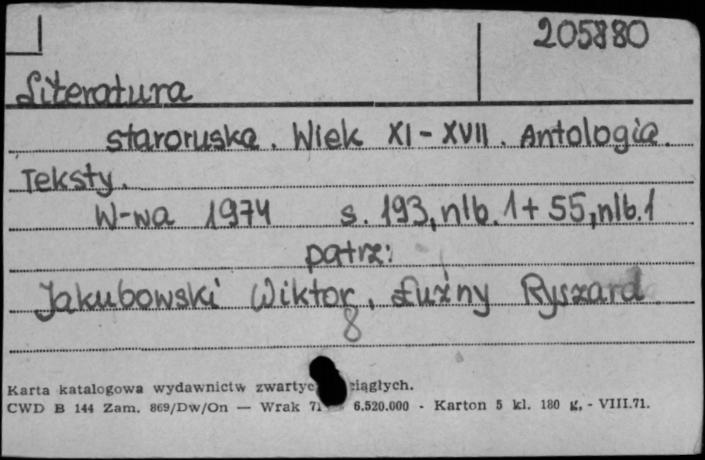 205880
Literatura
staroruska. Wiek XI - XVII. Antologia.
Teksty.
W-wa 1974 s. 193, nlb. 1 + 55, nlb. 1
patrz:
Jakubowski Wiktor, Łużny Ryszard
8
Karta katalogowa wydawnictw zwartyc ciągłych.
CWD B 144 Zam. 869/Dw/On — Wrak 71 6.520.000 - Karton 5 kl. 180 g, - VIII.71.